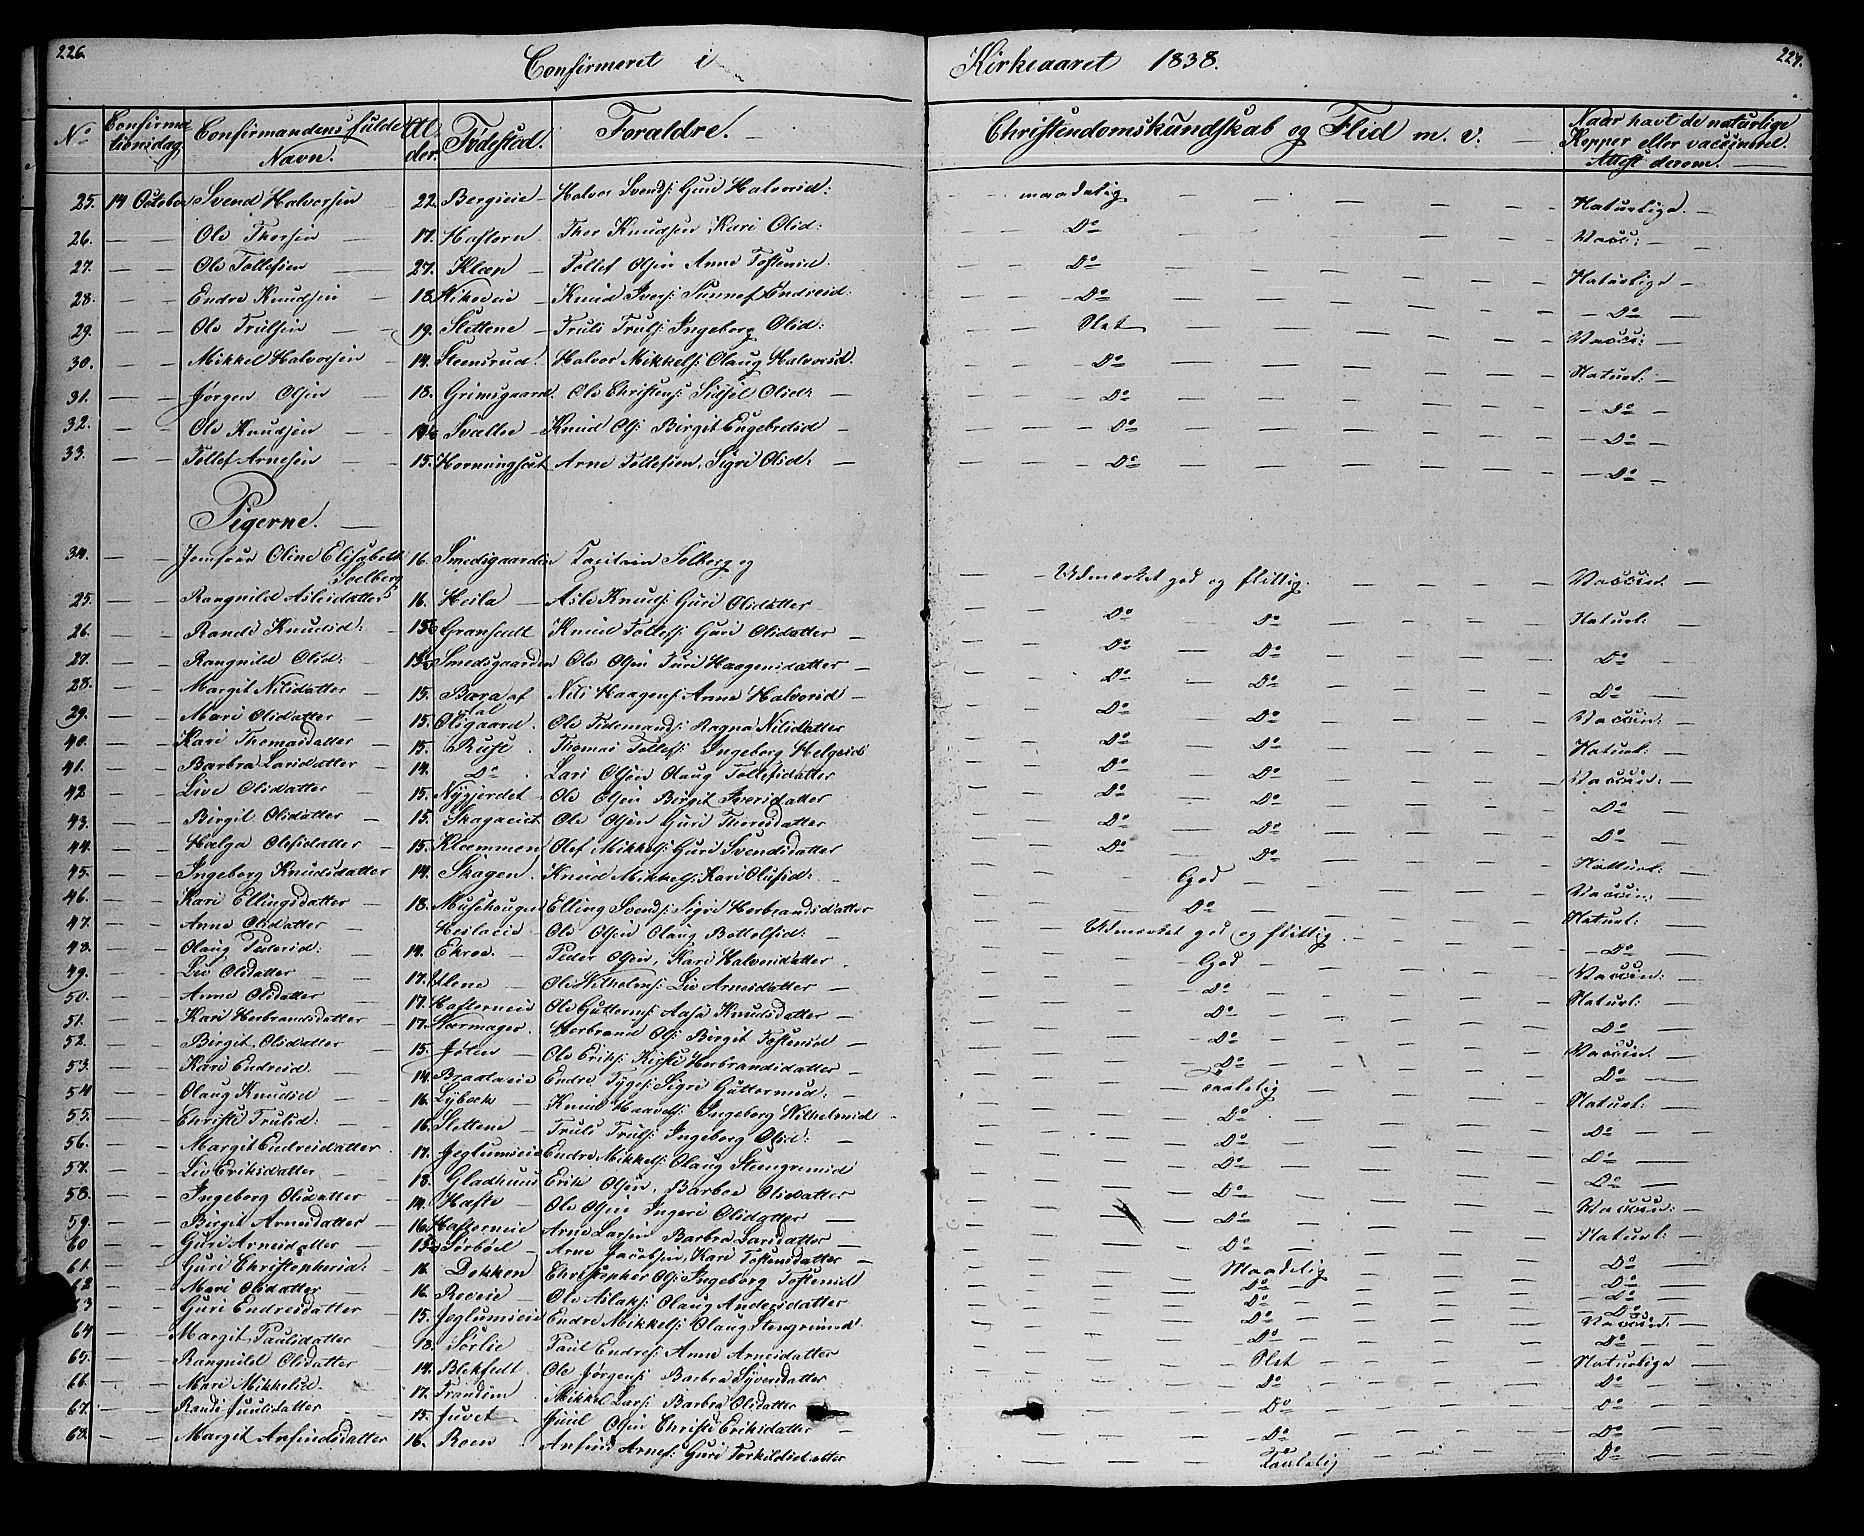 226.
Confirmeret i Kirkeaaret 1838.
227.
No
Confirmationsdag
Confirmandens fulde Navn.
Alder.
Fødested.
Foraldre.
Christendomskundskab og Flid m. v.
Naar havt de naturlige Kopper eller vaccineret. Attest derom.
25. 14 October Svend Halvorsen 22. Bergieie Halvor Svends: Guri Halvorsd: maadelig Naturlige.
26. Ole Thorsen 17. Haftorn Thor Knudsen Kari Olsd: Do Vacc:
27. Ole Tollefsen 27. Kleen Tollef Olsen Anne Tostensd. Do Naturlige
28. Endre Knudsen 18. Knud Ivers: Sunnef Endresd: Do Do
29. Ole Trulsen 19. Slettene Truls Truls: Ingeborg Olsd: Slet Vacc:
30. Mikkel Halvorsen 14. Steensrud Halvor Mikkels: Olaug Halvorsd. Do Naturl:
31. Jørgen Olsen 18. Grimsgaard. Ole Christens: Sidsel Olsd: Do Do
32. Ole Knudsen Svalle Knud Ols: Birgit Engebretsd Do Do
33. Tollef Arnesen 15. Arne Tollefsen, Sigri Olsd: Do Do
Pigerne.
34. Jomfrue Oline Elisabeth Soelberg 16. Smedsgaarden Capitain Solberg og Udmærket god og flittig. Vaccin:
25. Rangnild Aslesdatter 16. Heila Asle Knuds: Guri Olsdatter Do Do Naturl:
26. Randi Knudsd: Gransedt Knud Tollefs: Guri Olsdatter Do Do Do
27. Rangnild Olsd: Smedsgaarden Ole Olsen Turi Haagensdatter Do Do Do
28. Margit Nilsdatter 15. Nils Haagens: Anne Halvorsd Do Do Vaccin:
29. Mari Olsdatter 15. Olsgaard. Ole Tidemands: Ragna Nilsdatter Do Do Naturl:
40. Kari Thomasdatter 15. Rust Thomas Tollefs: Ingeborg Helgesd Do Do Vaccin:
41. Barbra Larsdatter 14. Do Lars Olsen Olaug Tollefsdatter Do Do Do
42 Live Olsdatter 15. Nygjerdet Ole Olsen Birgit Iversdatter Do Do Do
43. Birgit Olsdatter 15. Skagaeiet Ole Olsen Guri Thoresdatter Do Do
44. Helga Olefsdatter 15. Klemmen Olef Mikkels: Guri Svendsdatter Do Do Natturl:
45. Ingeborg Knudsdatter 14. Skagen Knud Mikkels: Kari Olufsd: God Vaccin:
46. Kari Ellingsdatter 18. Elling Svends: Sigri Herbrandsdatter Do Naturl:
47. Anne Olsdatter Heilaeie Ole Olsen Olaug Bottolfsd: Udmærket god og flittig Do
48. Olaug Pedersd: 14. Ekren Peder Olsen, Kari Halvorsdatter God Vaccin:
49. Liv Olsdatter 17. Ole Wilhelms: Liv Arnesdatter Do Naturl:
50. Anne Olsdatter 17. Hafterneie Ole Gutterms: Aase Knudsdatter Do Do
51. Kari Herbrandsdatter 17. Nermager Herbrand Ols: Birgit Tostensd Do Vaccin.
52. Birgit Olsdatter 15. Jøten Ole Eriks: Kirste Herbrandsdatter Do Do
53. Kari Endresd. 14. Endre Tyges: Sigri Guttormsd: Taalelig Naturl:
54 Olaug Knudsd 16. Lybeck Knud Haavels: Ingeborg Wilhelmsd Do Do
55. Christi Trulsd: 16. Slettene Truls Truls: Ingeborg Olsd: Do Do
56. Margit Endresdatter 17. Jeglumseie Endre Mikkels: Olaug Steengrimsd Do Do
57. Liv Eriksdatter 18. Gladhuus Erik Olsen, Barbro Olsdatter Do Vaccin:
58. Ingeborg Olsdatter 14. Hafte Ole Olsen Ingeri Olsdatter Do Naturl:
59. Birgit Arnesdatter 16. Hafterneie Arne Larsen Barbra Larsdatter Do Do
60 Guri Arnesdatter Sørbøel Arne Jacobsen, Kari Tostensdatter Maadelig Do
61. Guri Christophersd: 16. Dokken Christopher Ols: Ingeborg Tostensd Do Do
62 Mari Olsdatter 16. Roeeie Ole Aslaks: Olaug Andersdatter Do Do
63 Guri Endresdatter 15. Jeglumseie Endre Mikkels: Olaug Stengrimsd: Do Vaccin:
64 Margit Paulsdatter 18. Sørlie Paul Endres: Anne Arnesdatter Do Do
65. Rangnild Olsdatter 14. Ole Jørgens: Barbra Syversdatter Slet Naturlige
66. Mari Mikkelsd. 17. Trandum Mikkel Lars: Barbra Olsdatter Do Do
67. Randi Juulsdatter 15. Juvet Juul Olsen Christi Eriksdatter Do Do
68. Margit Anfindsdatter 16. Roen Anfind Arnes: Guri Torkildsdatter Do Do
Taalelig Do